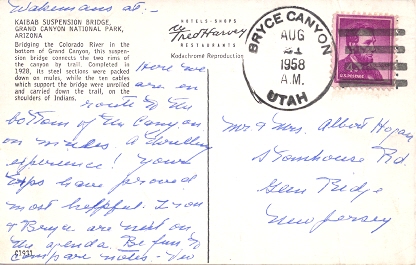 Wakemans at:-
KAIBAB SUSPENSION BRIDGE,
GRAND CANYON NATIONAL PARK,
ARIZONA
Bridging the Colorado River in the
bottom of Grand Canyon, this suspen-
sion bridge connects the two rims of
the canyon by trail. Completed in
1928, its steel sections were packed
down on mules, while the ten cables
which support the bridge were unrolled
and carried down the trail, on the
shoulders of Indians.
HOTELS-SHOPS
Fred Harvey
RESTAURANTS
Kodachrome Reproduction
Here we
are en
route to the
bottom of the Canyon
on mules. A thrilling
experience! Your
tips have proved
most helpful. Zion
& Bryce are next on
the agenda. Be fun to
compare notes - Viv
C1931
BRYCE CANYON
AUG
21
1958
A.M.
UTAH
U.S. POSTAGE
Mr & Mrs. Albert Hogan
Stonehouse Rd
Glen Ridge
New Jersey